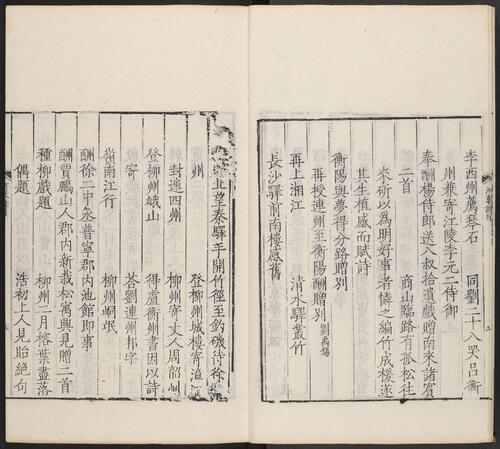 李西州薦琴石 同劉二十八哭呂衡
州兼寄江陵李元二侍御
奉酬楊侍郎送八叔拾遺戲贈南來諸賓
二首 商山臨路有孤松往
來斫以為明好事者憐之編竹成楥遂
其生植感而賦詩
衡陽與夢得分路贈別
再授連州至衡陽酬贈別 劉禹錫
再上湘江 清水驛叢竹
長沙驛前南樓感舊
北望秦驛手開竹徑至釣磯待徐
州 登柳州城樓寄漳汀
封連四州 柳州寄丈人周韶州
登柳州峨山 得盧衡州書因以詩
寄 荅劉連州邦字
嶺南江行 柳州峒氓
酬徐二中丞普寧郡內池館即事
酬賈鵬山人郡內新栽松寓興見贈二首
種柳戲題 柳州二月榕葉盡落
偶題 浩初上人見貽絕句